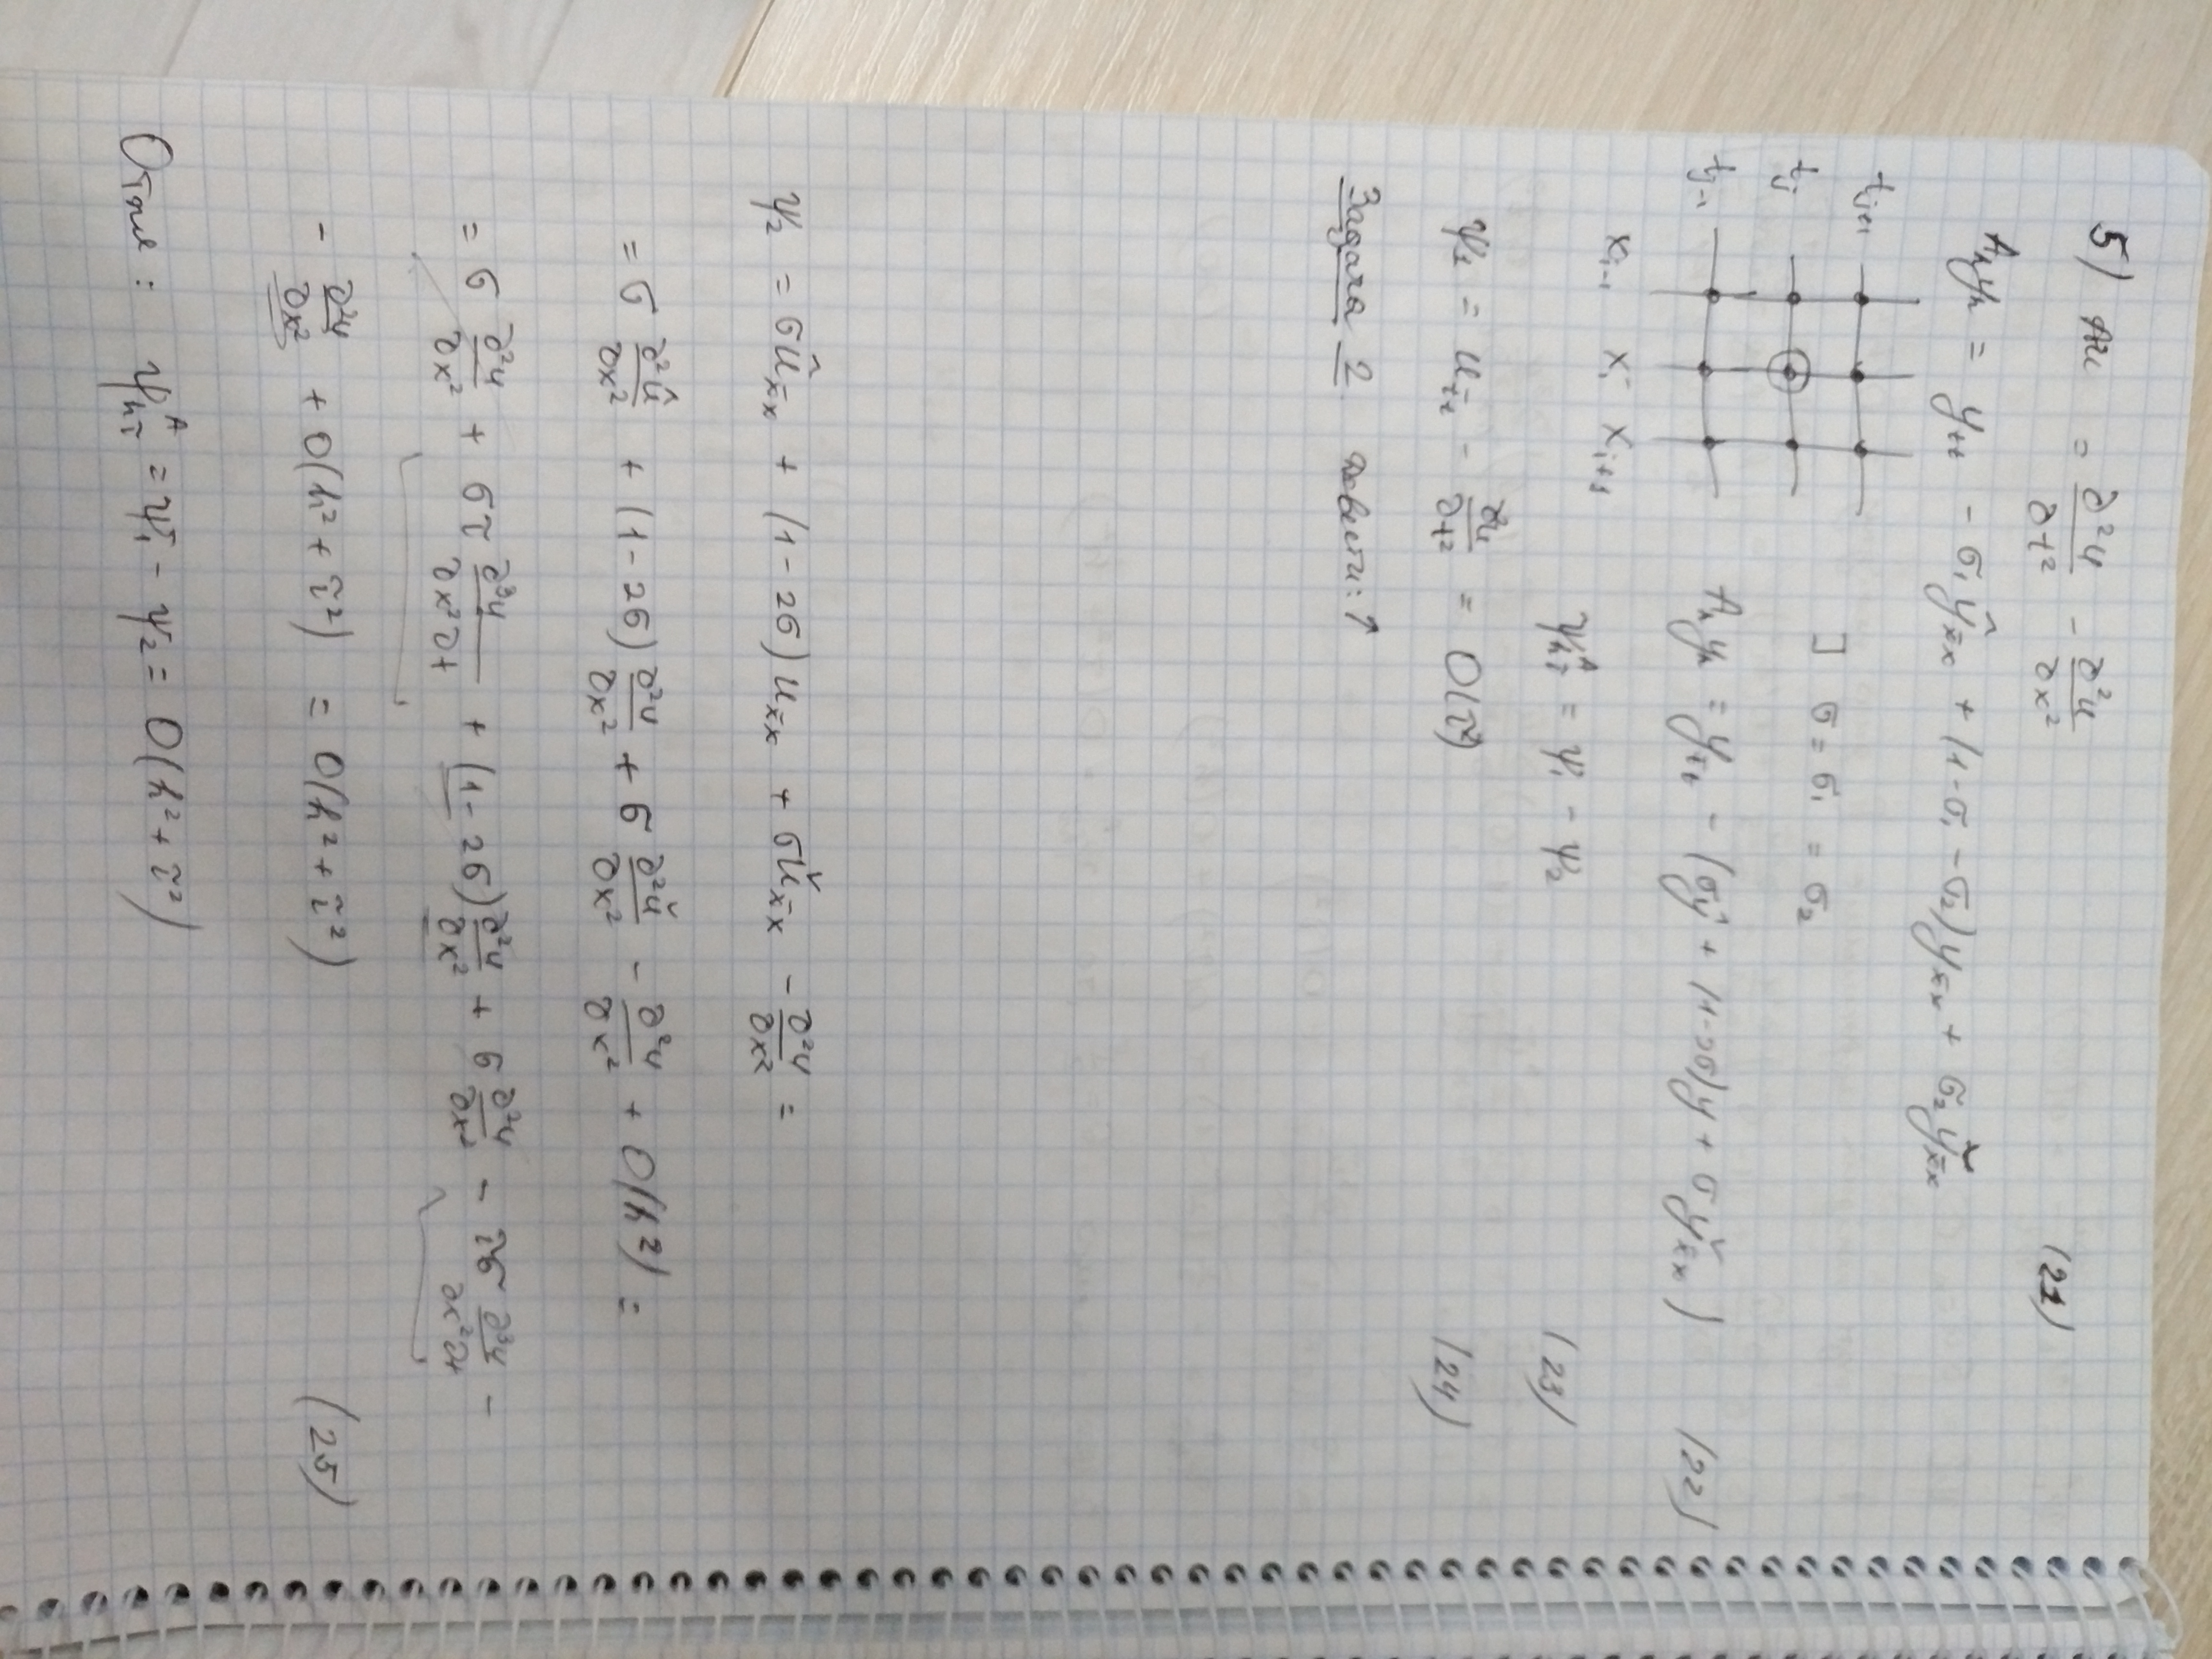 5) Au = ∂²u/∂t² - ∂²u/∂x² (21)
Aₕyₕ = y_t̄t - σ₁ŷ_x̄x + (1-σ₁-σ₂)y_x̄x + σ₂y̌_x̄x
t_{j+1}
t_j
t_{j-1}
x_{i-1} x_i x_{i+1}
] σ = σ₁ = σ₂
Aₕyₕ = y_t̄t - (σŷ + (1-2σ)y + σy̌_x̄x) (22)
ψᴬₕτ = ψ₁ - ψ₂ (23)
ψ₁ = u_t̄t - ∂²u/∂t² = O(τ²) (24)
Задача 2 довести: ↑
ψ₂ = σû_x̄x + (1-2σ)u_x̄x + σǔ_x̄x - ∂²u/∂x² =
= σ ∂²û/∂x² + (1-2σ) ∂²u/∂x² + σ ∂²ǔ/∂x² - ∂²u/∂x² + O(h²) =
= σ ∂²u/∂x² + στ ∂³u/∂x²∂t + (1-2σ) ∂²u/∂x² + σ ∂²u/∂x² - τσ ∂³u/∂x²∂t -
- ∂²u/∂x² + O(h²+τ²) = O(h²+τ²) (25)
Отже: ψᴬₕτ = ψ₁ - ψ₂ = O(h²+τ²)